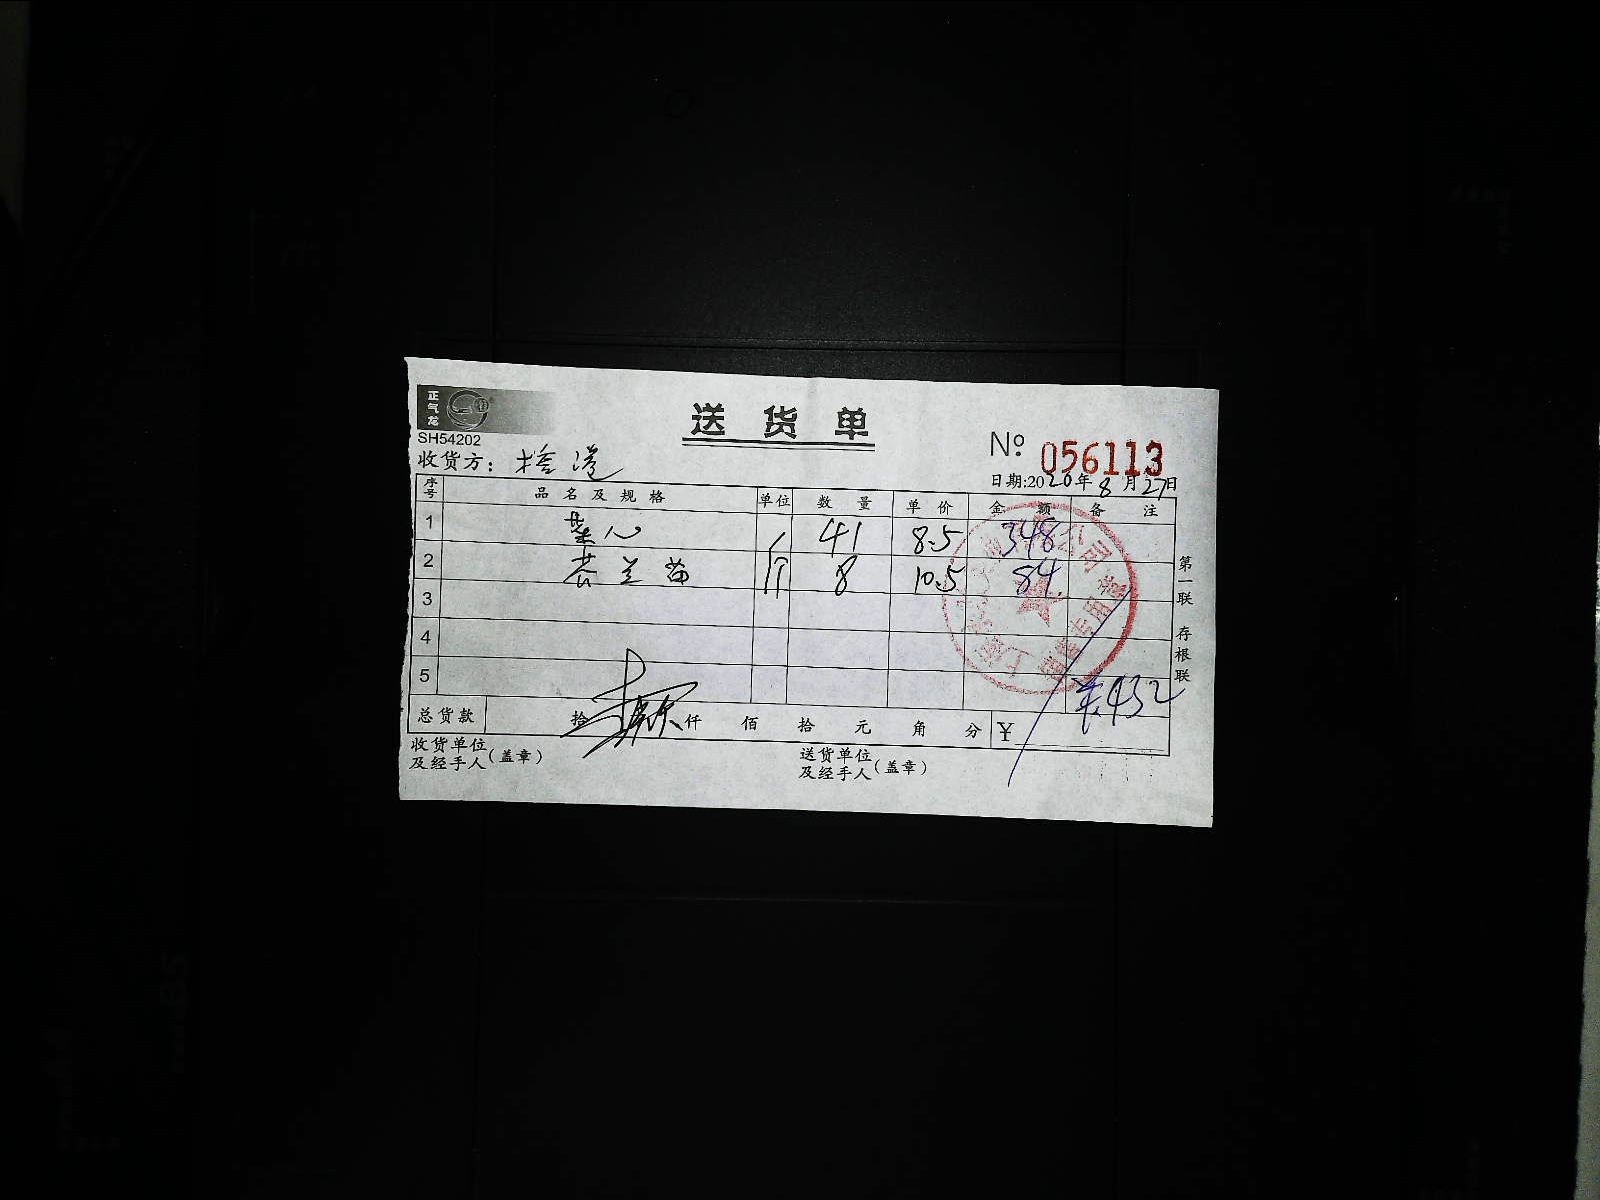 正气龙
SH54202
送货单
№ 056113
收货方:
日期:2020年8月27日
序号 品名及规格 单位 数量 单价 金额 备注
1 菜心 个 41 8.5 348
2 芥兰苗 个 8 10.5 84
3
4
5
总货款 拾 仟 佰 拾 元 角 分 ¥ ¥432
收货单位及经手人(盖章) 送货单位及经手人(盖章)
第一联 存根联